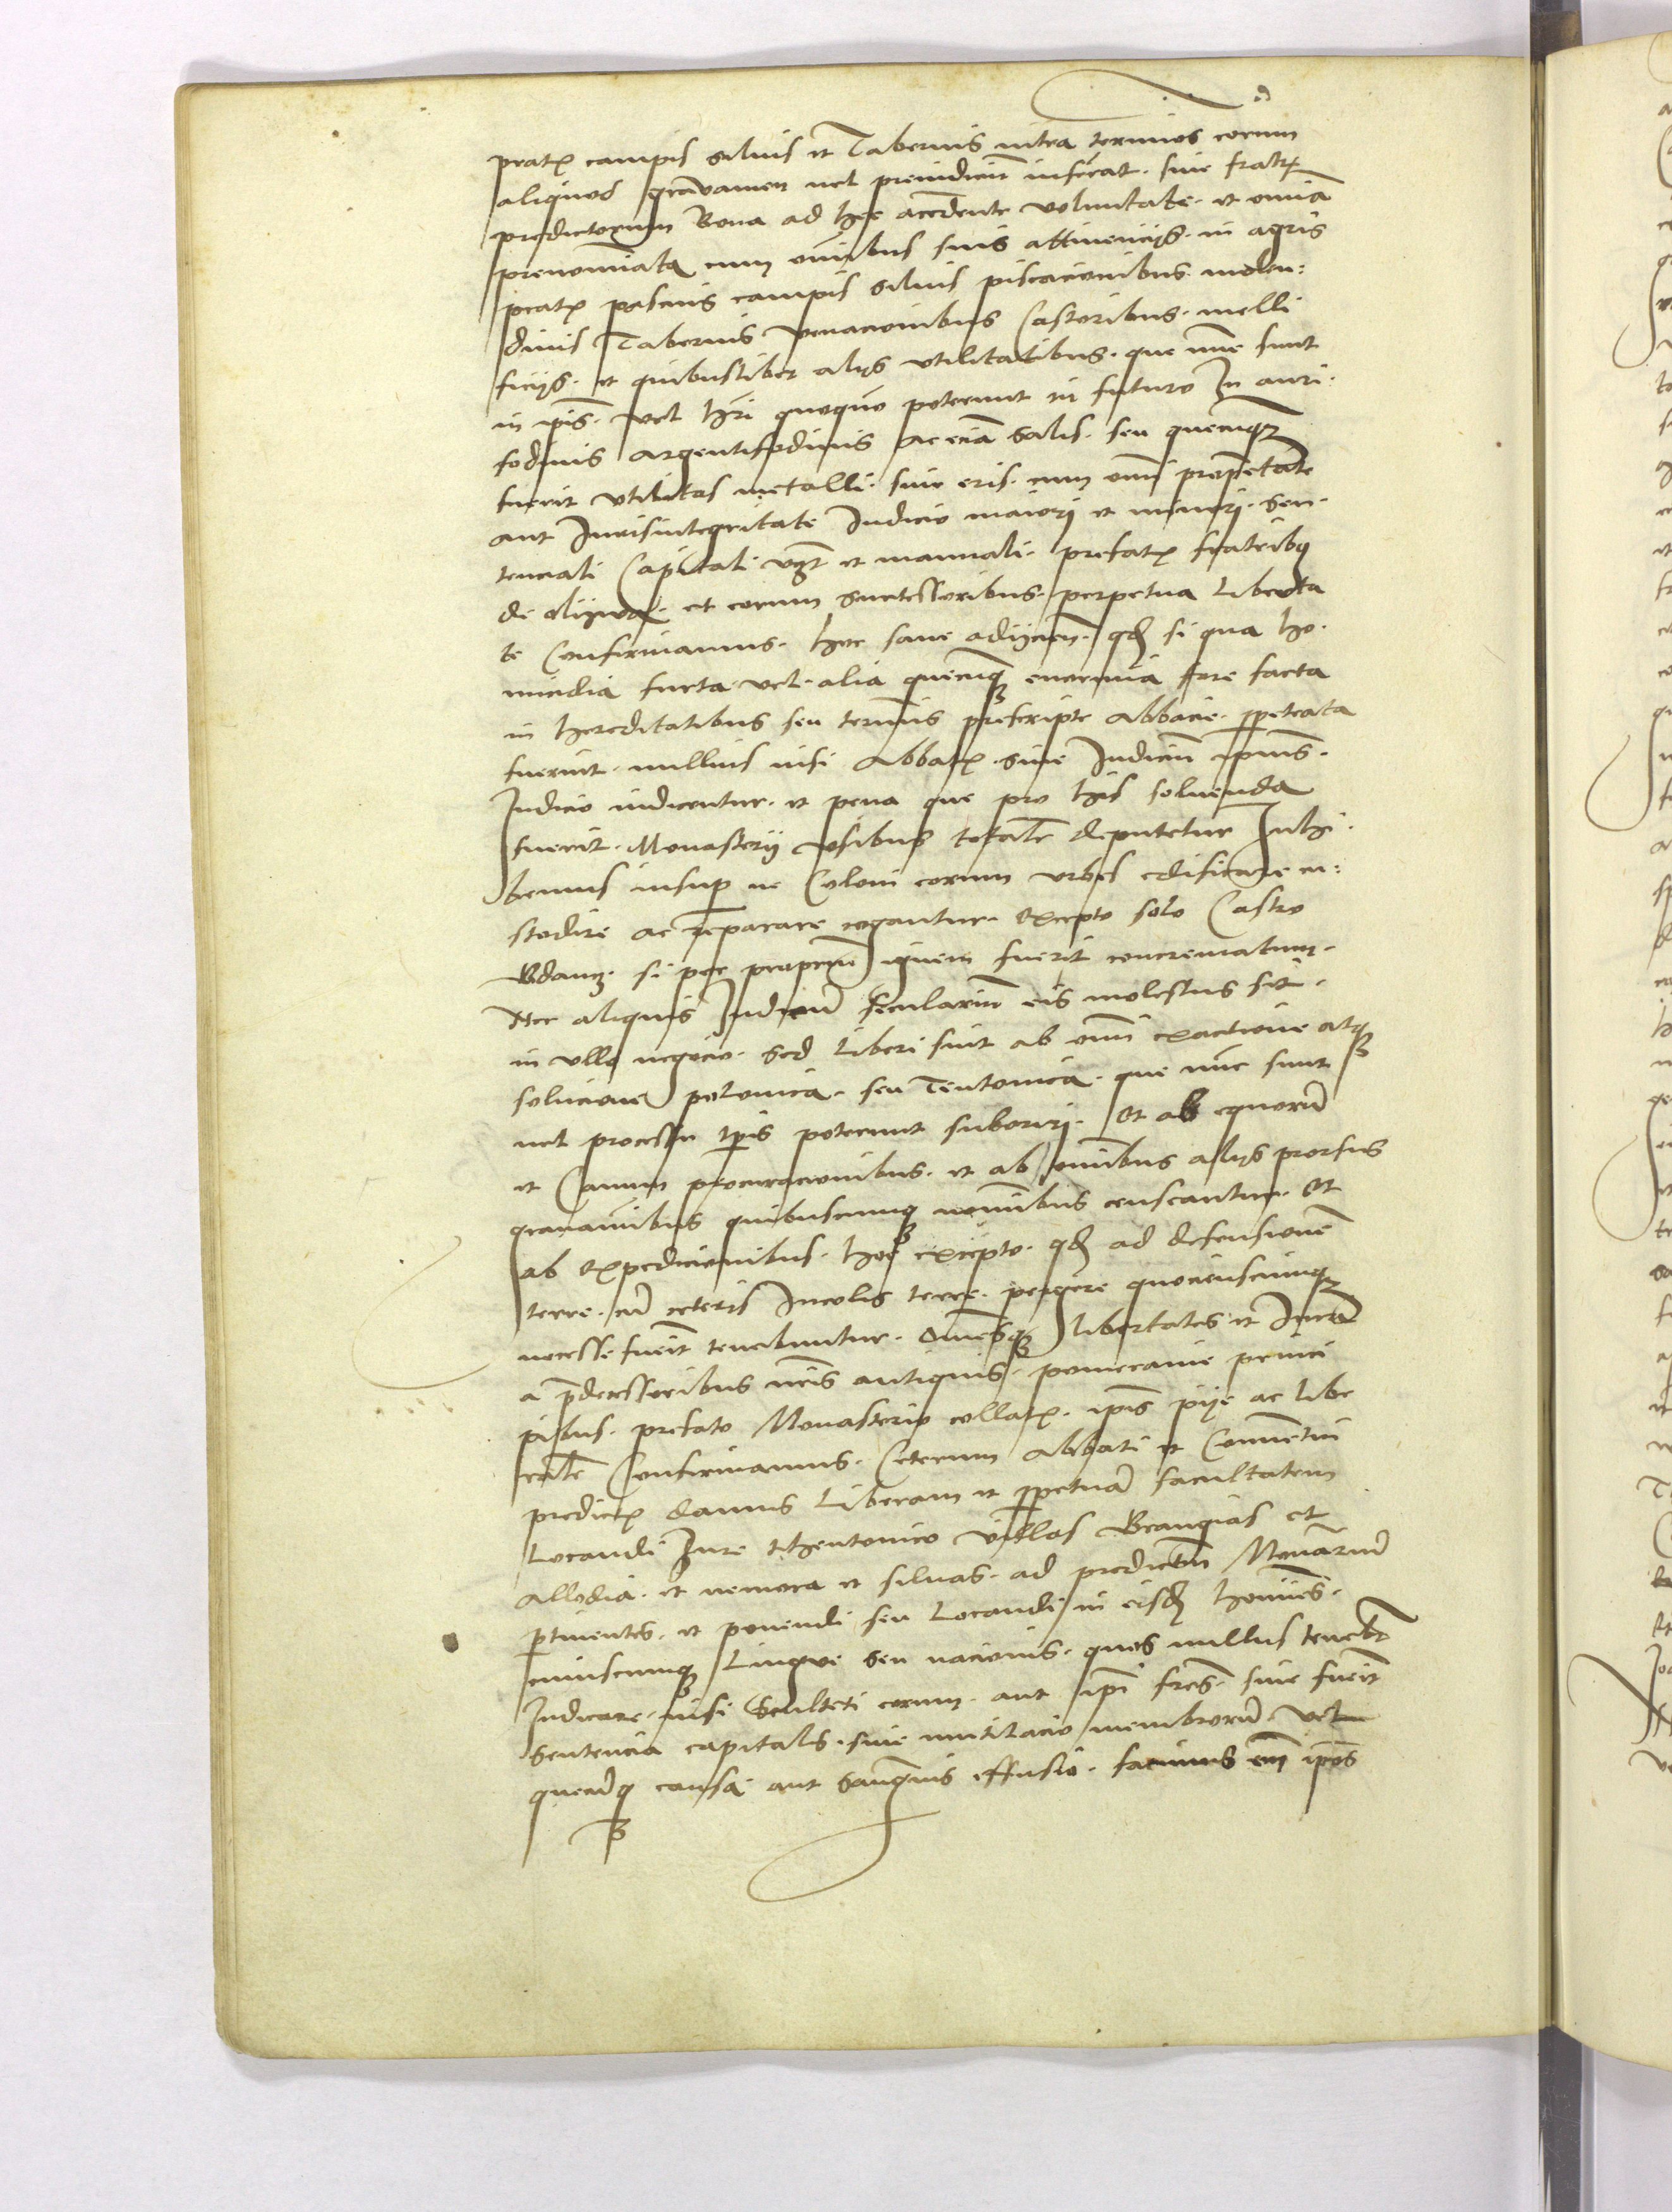 prat(is) campis siluis et Tabernis intra terminos eorum
aliquod grauamen uel preiudiciu(m) inferat. siue fratr(um)
predictorum Bona ad hec accedente voluntate. et omnia
prenominata cum omnibus suis attinencijs. in agris
prat(is) pascuis campis siluis piscacionibus molen:
dinis Tabernis venacionibus Castoribus. melli
ficijs. et quibuslibet alijs vtilitatibus. que nunc sunt
in ip(s)is. vel h(abe)ri quoquo poterunt in futuro In auri.
fodinis argentifodinis ac eciã salis. seu quecumq(ue)
fuerit vtilitas metalli. siue eris. cum omni proprietate
aut Iurisintegritate Iudicio maiori et minori. Sen.
tenciali Capitali v(idelice)t et manuali. prefat(is) fratribus
de olijwa. et eorum successoribus. perpetua Liberta
te Confirmamus. hoc sane adijcien(tes). q(uo)d si qua ho.
micidia furta vel alia quecumq(ue) enormia fore facta
in hereditatibus seu terminis prescripte Abbacie. p(er)petrata
fuerint. nullius nisi Abbat(is). siue Iudicu(m) ip(s)ius.
Iudicio iudicentur. et pena que pro his soluenda
fuerit. Monasterij vsibus totalit(er) deputetur Inhi.
bemus insup(er) ne Coloni eorum vrbes edificare cu:
stodire ac reparare cogantur. excepto solo Castro
Gdancz. si per propriu(m) ignem fuerit concrematum.
Nec aliquis Iudicu(m) seculariu(m) eis molestus sit.
in vllo negocio. Sed Liberi sint ab omni exactione atq(ue)
solucione polonica. seu Teutonica. que nunc sunt
uel processu t(em)p(or)is poterunt suboriri. Et ab equoru(m)
et Canum procuracionibus. et ab omnibus alijs prorsus
grauaminibus quibuscumq(ue) nominibus censeantur. Et
ab expedicionibus. hoc excepto. q(uo)d ad defensione(m)
terre. cu(m) ceteris Incolis terre. pergere quocienscumq(ue)
necesse fuerit tenebuntur. Omnesq(ue) libertates et Iura
a p(re)decessoribus n(ost)ris antiquis. pomeranie princi
pibus. prefato Monasterio collat(as). ip(s)is pije ac libe
ralit(er) Confirmamus. Ceterum Abbati et Conuentui
predict(is) damus Liberam et p(er)petua(m) facultatem
Locandi Iure theutonico villas Grangias et
Allodia. et nemora et siluas. ad predictu(m) Monas(te)riu(m)
p(er)tinentes. et ponendi seu Locandi in eisd(em) homines.
cuiuscumq(ue) Lingue seu nacionis. quos nullus tenebit(ur)
Iudicare. nisi Sculteti eorum. aut ip(s)i fr(atr)es. siue fuerit
Sentencia capitalis. siue mutilacio membroru(m) vel
quecu(m)q(ue) causa aut Sangwinis effusio. facimus em(im) ip(s)os